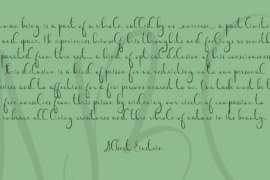 human being is a part of a whole, called by us _universe_, a part limited
and space. He experiences himself, his thoughts and feelings as something
separated from the rest... a kind of optical delusion of his consciousness.
This delusion is a kind of prison for us, restricting us to our personal
desires and to affection for a few persons nearest to us. Our task must be to
free ourselves from this prison by widening our circle of compassion to
embrace all living creatures and the whole of nature in its beauty.
Albert Einstein